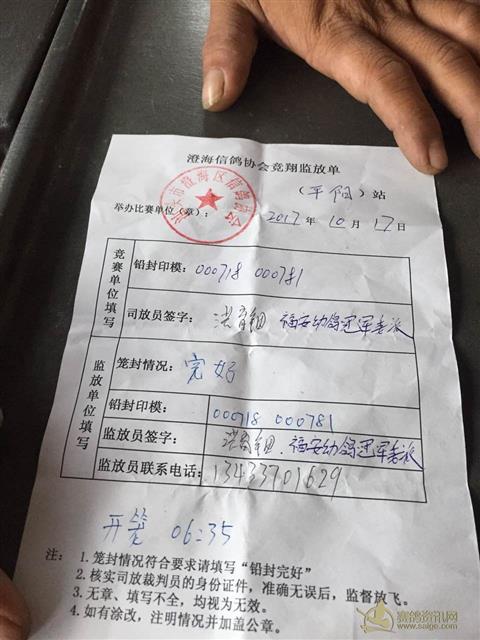 澄海信鸽协会竞翔监放单
（平阳）站
举办比赛单位（章）： 2017年10月17日
市澄海区信鸽
竞赛单位填写
铅封印模：000718 000781
司放员签字： 福安幼鸽冠军
监放单位填写
笼封情况：完好
铅封印模： 000718 000781
监放员签字： 福安幼鸽冠军
监放员联系电话：13437701629
开笼 06:35
注： 1.笼封情况符合要求请填写“铅封完好”
2.核实司放裁判员的身份证件，准确无误后，监督放飞。
3.无章、填写不全，均视为无效。
4.如有涂改，注明情况并加盖公章。
赛鸽资讯网
www.saige.com